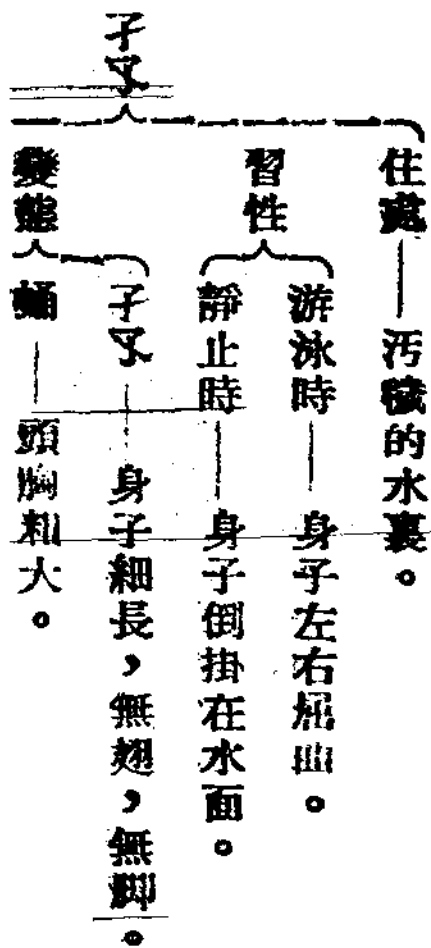 孑孓
住處——汚穢的水裏。
習性
游泳時——身子左右屈曲。
靜止時——身子倒掛在水面。
變態
孑孓——身子細長，無翅，無脚。
蛹——頭胸粗大。